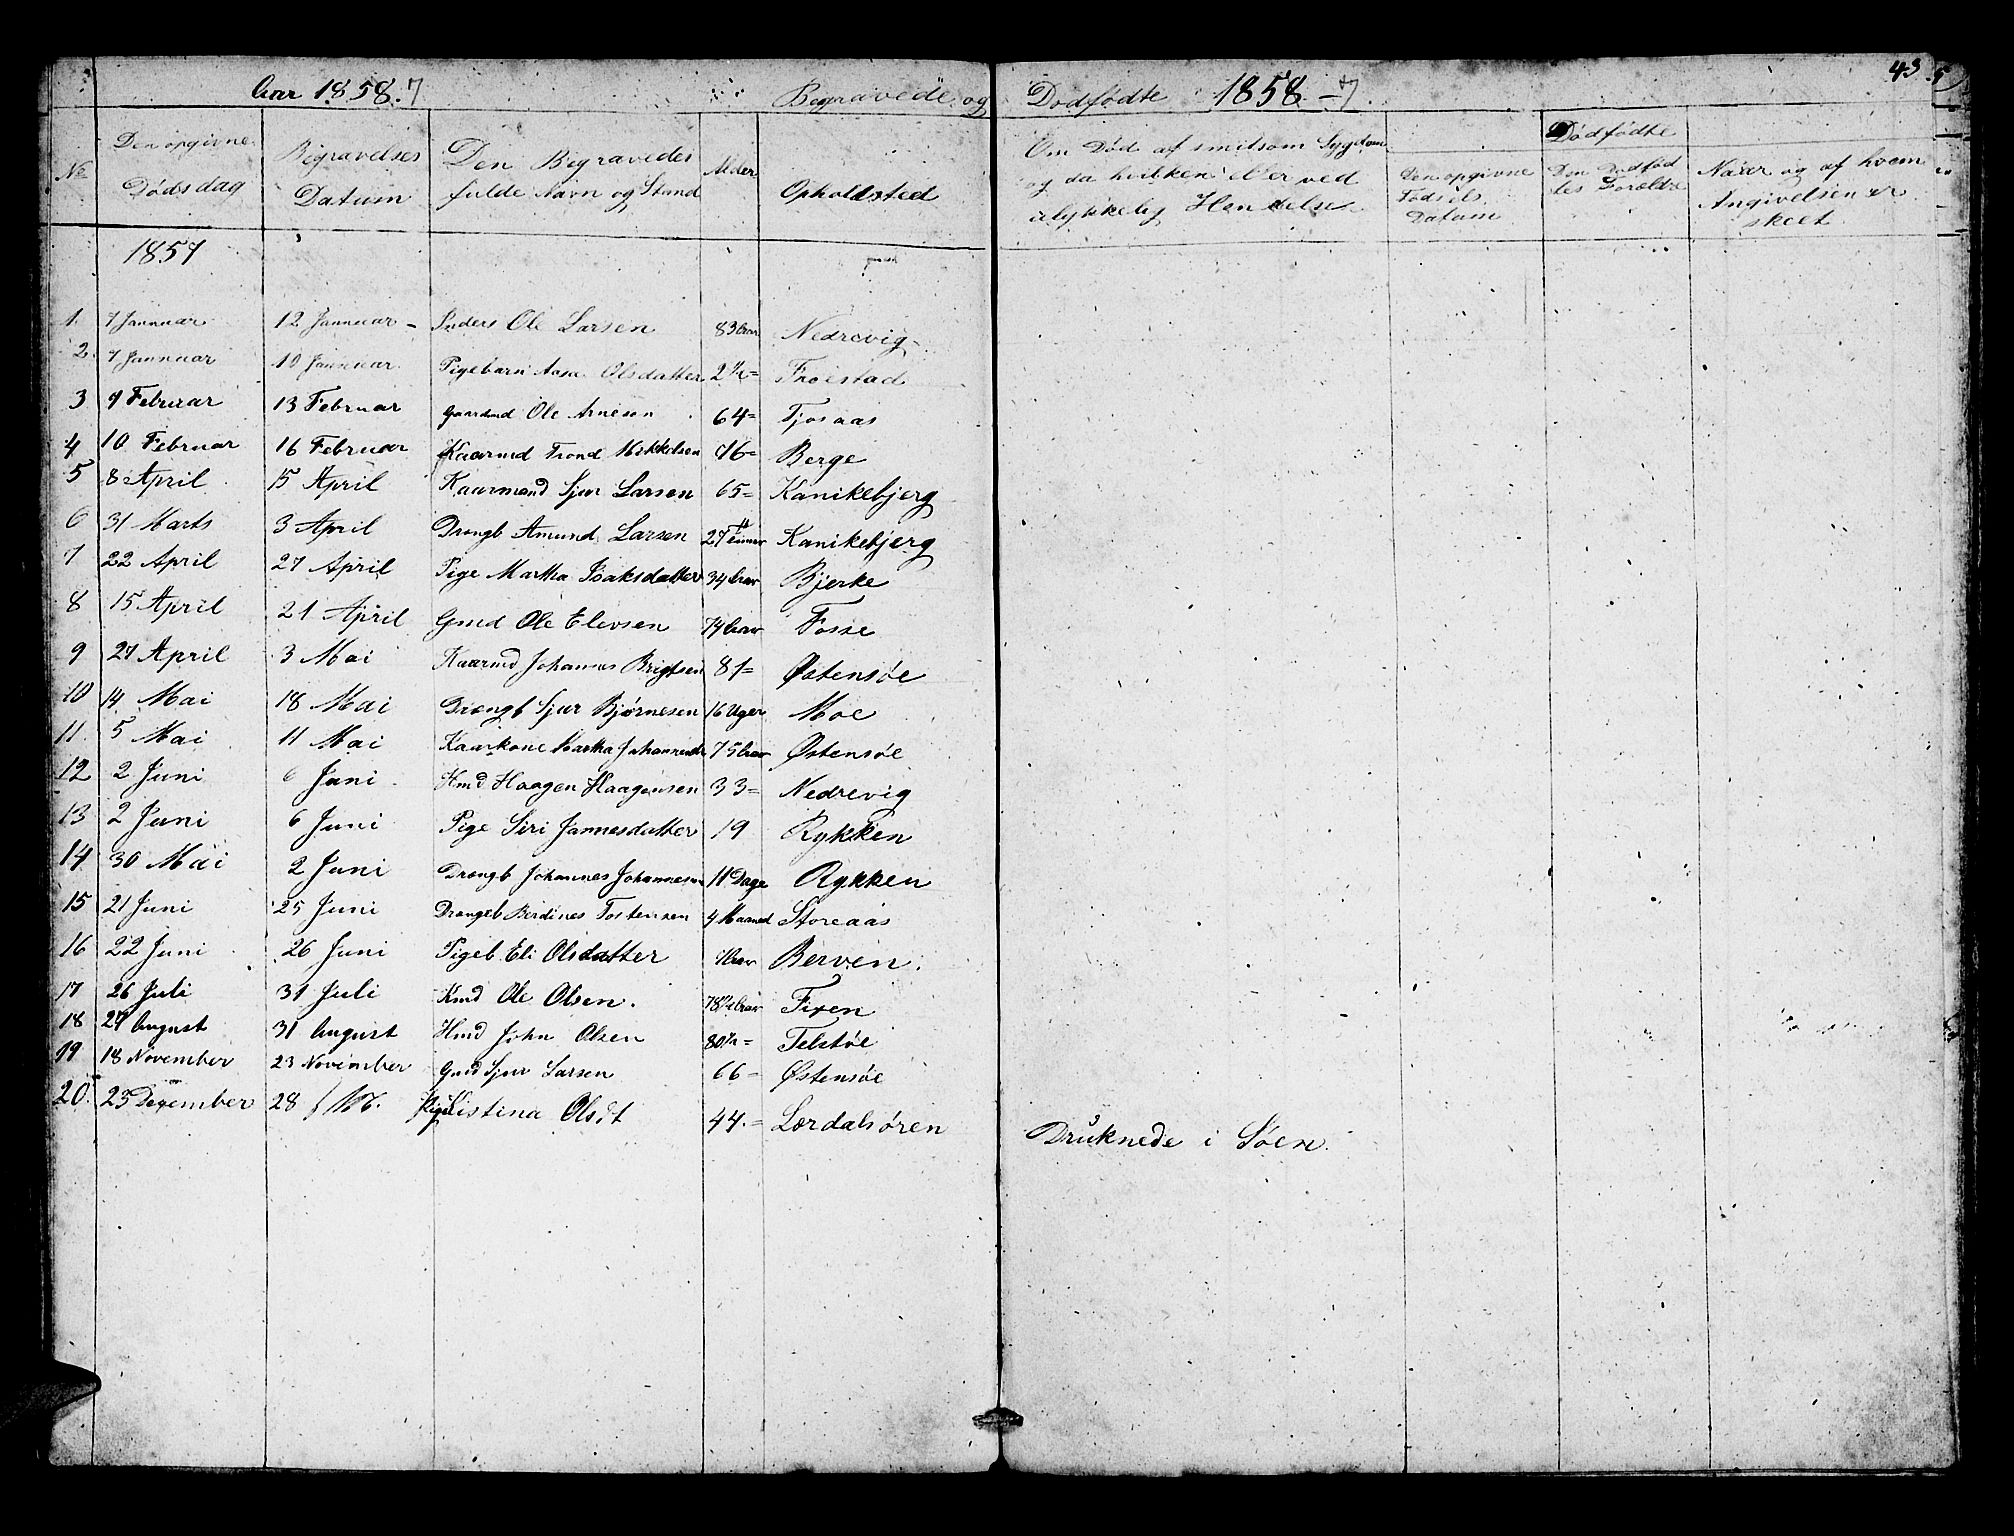 Aar 1858.7 Begravede og Dødfødte 1858 - 7. 43
№
Den opgivne Dødsdag
Begravelses Datum
Den Begravedes fulde Navn og Stand
Alder
Opholdsted
Om Død af smitsom Sygdom og da hvilken eller ved ulykkelig Hendelse
Dødfødte
Den opgivne Fødsels Datum
Den Dødfødtes Foreldre
Naar og af hvem Angivelsen er skeet
1857
1. 7 Januar 12 Januar - Inders Ole Larsen 83 Aar Nedrevig
2. 7 Januar 10 Januar Pigebarn Aasa Olsdatter 2 1/2 = Froestad
3 7 Februar 13 Februar Gaardmd Ole Arneson 64 = Tjosaas
4 10 Februar 16 Februar Kaarmd Trond Mikkelsen 76 = Berge
5 8 April 15 April Kaarmand Sjur Larsen 65 = Kanikebjerg
6 31 Marts 3 April Drengb Amund Larsen 27 Timer Kanikebjerg
7 22 April 27 April Pige Martha Isaksdatter 34 Aar Bjerke
8 15 April 21 April Gmd Ole Elevsen 74 Aar Fosse
9 27 April 3 Mai Kaarmd Johannes Brigtsen 81 = Østensøe
10 14 Mai 18 Mai Drengb Sjur Bjørnesen 16 Uger Moe
11. 5 Mai 11 Mai Kaarkone Martha Johannesdr 75 Aar Østensøe
12 2 Juni 6 Juni Hmd Haagen Haagensen 33 = Nedrevig
13 2 Juni 6 Juni Pige Siri Jannesdatter 19 Rykken
14 30 Mai 2 Juni Drengb Johannes Johannesen 11 Dage Rykken
15 21 Juni 25 Juni Drengeb Berdines Tostensen 4 Maaned Storeaas
16 22 Juni 26 Juni Pigeb. Eli Olsdatter Aar Berven.
17 26 Juli 31 Juli Kmd Ole Olsen. 78 1/2 Aar Fixen
18 27 August 31 August Hmd John Olsen 80 1/2 = Telstøe
19 18 November 23 November Gmd Sjur Larsen 66 = Østensøe
20. 23 December 28 Pige Kistina Olsdt 44. = Lærdalsøren Druknede i Søen.